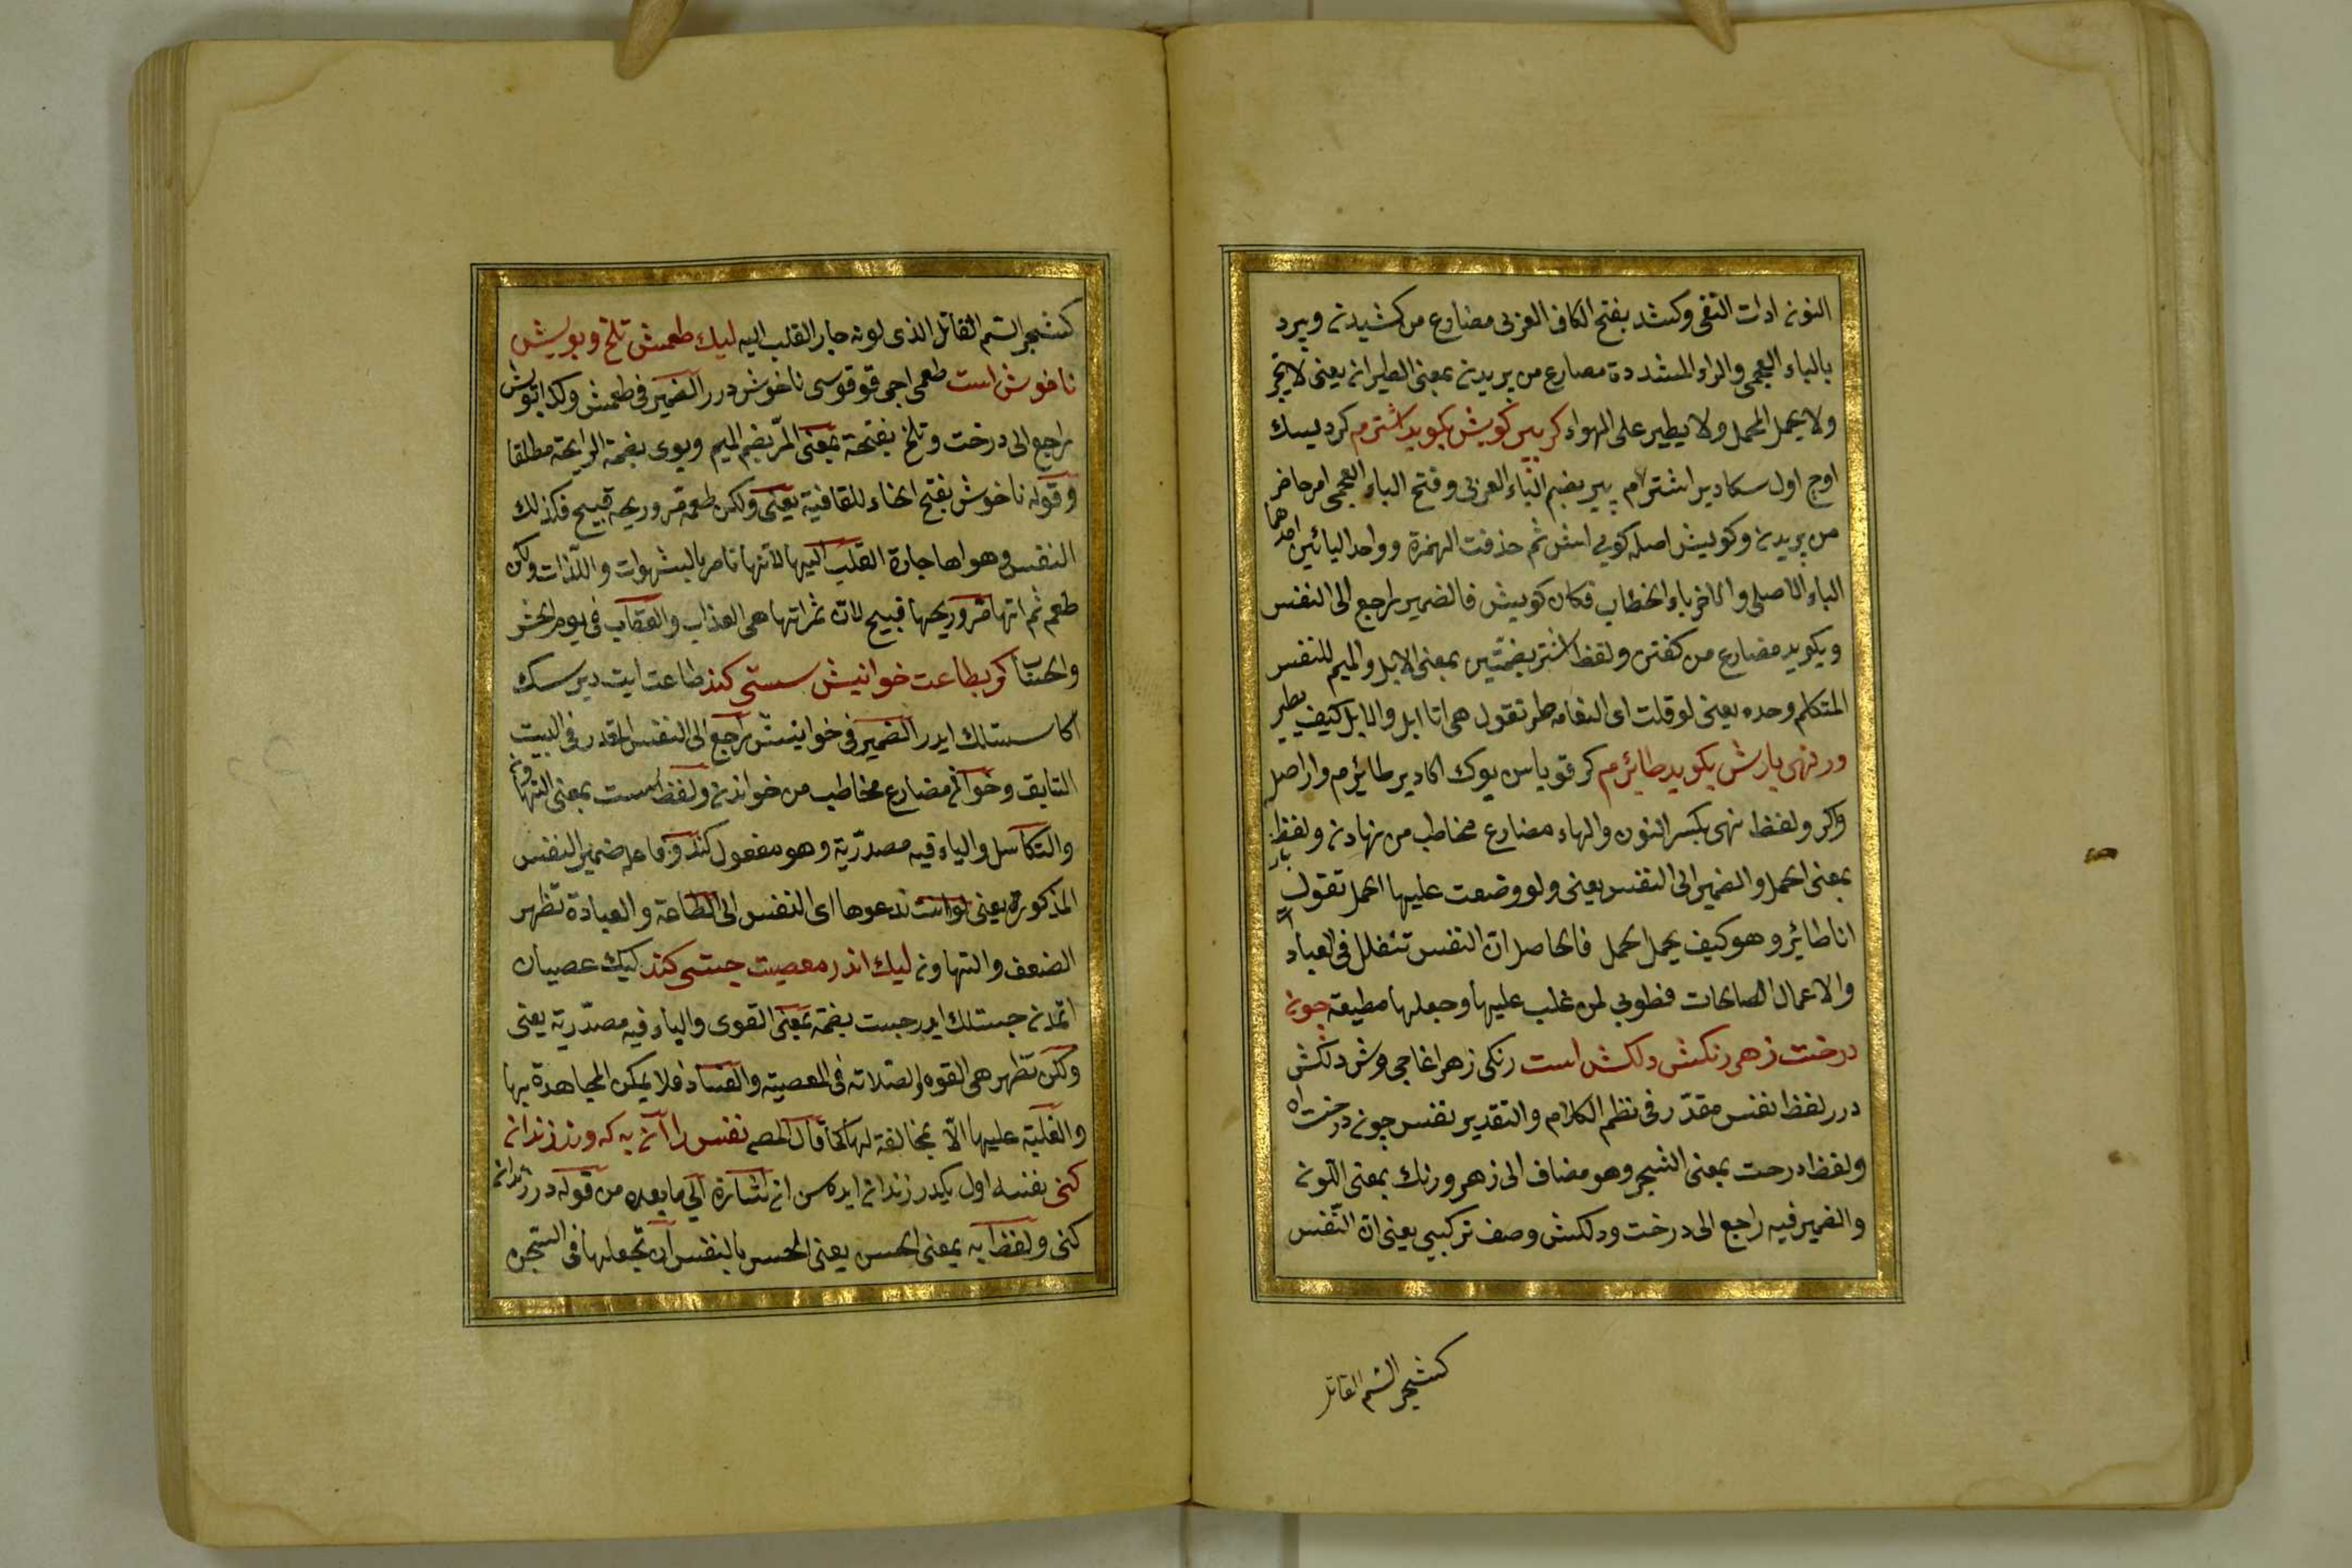 النون ادات النفى وكشد بفتح الكاف العربى مضارع من كشيدن وپرد
بالباء العجمى والراء المشددة مضارع من پريدن بمعنى الطيران يعنى لا تجر
ولا يحمل المحمل ولا يطير على الهواء كر بپر كويش بكويد اشترم كر ديسك
اوچ اول سكا دير اشترام بپر بضم الباء العربى وفتح الباء العجمى امر حاضر
من پريدن وكوييش اصله كويى اش ثم حذفت الهمزة وواحد اليائين احدهما
الياء الاصلى والاخر ياء الخطاب فكان كوييش فالضمير راجع الى النفس
وبكويد مضارع من كفتن ولفظ اشتر بضمتين بمعنى الابل والميم للنفس
المتكلم وحده يعنى لو قلت اى النعامه طر تقول هى انا ابل والابل كيف يطير
ور نهى بارش بكويد طائرم كر قوياسن يوك اكا دير طائرم وار اصل
واكر ولفظ نهى بكسر النون والهاء مضارع مخاطب من نهادن ولفظ بار
بمعنى الحمل والضمير الى النفس يعنى ولو وضعت عليها الحمل تقول
انا طائر وهو كيف يحمل الحمل فالحاصل ان النفس تتعلل فى العبادات
والاعمال الصالحات فطوبى لمن غلب عليها وجعلها مطيعة چون
درخت زهر رنكش دلكش است رنكى زهر اغاجى وش دلكش
درر لفظ نفس مقدر فى نظم الكلام والتقدير نفس چون درخت اه
ولفظ درخت بمعنى الشجر وهو مضاف الى زهر ورنك بمعنى اللون
والضمير فيه راجع الى درخت ودلكش وصف تركيبى يعنى ان النفس
كشجر السم القاتل
كشجر السم القاتل الذى لونه جار القلب اليه ليك طعمش تلخ وبويش
ناخوش است طعمى اجى قوقوسى ناخوش درر الضمير فى طعمش وكذا بويش
راجع الى درخت وتلخ بفتحة بمعنى المر بضم الميم وبوى بضمة الرايحة مطلقا
وقوله ناخوش بفتح الخاء للقافية يعنى ولكن طعمه مر وريحه قبيح فكذلك
النفس وهواها جارة القلب اليها لانها تامر بالشهوات واللذات ولكن
طعم ثمراتها مر وريحها قبيح لان ثمراتها هى العذاب والعقاب فى يوم الحشر
والحساب كر بطاعت خوانيش سستى كند طاعت ايت ديرسك
اكا سستلك ايدر الضمير فى خوانيش راجع الى النفس المقدر فى البيت
السابق وخوانى مضارع مخاطب من خواندن ولفظ سست بمعنى التهاون
والتكاسل والياء فيه مصدرية وهو مفعول كند وفاعله ضمير النفس
المذكورة يعنى لو انت تدعوها اى النفس الى الطاعة والعبادة تظهر
الضعف والتهاون ليك اندر معصيت چستى كند ليك عصيان
اتمدن چستلك ايدر چست بضمة بمعنى القوى والياء فيه مصدرية يعنى
ولكن تظهر هى القوه والصلابه فى المعصية والفساد فلا يمكن المجاهدة بها
والغلبة عليها الا بمخالفة لها كما قال المص نفس را آن به كه در زندان
كنى نفسه اول يكدر زندان ايده سن ان اشارة الى ما بعده من قوله در زندان
كنى ولفظ به بمعنى الحسن يعنى الحسن بالنفس ان تجعلها فى السجن